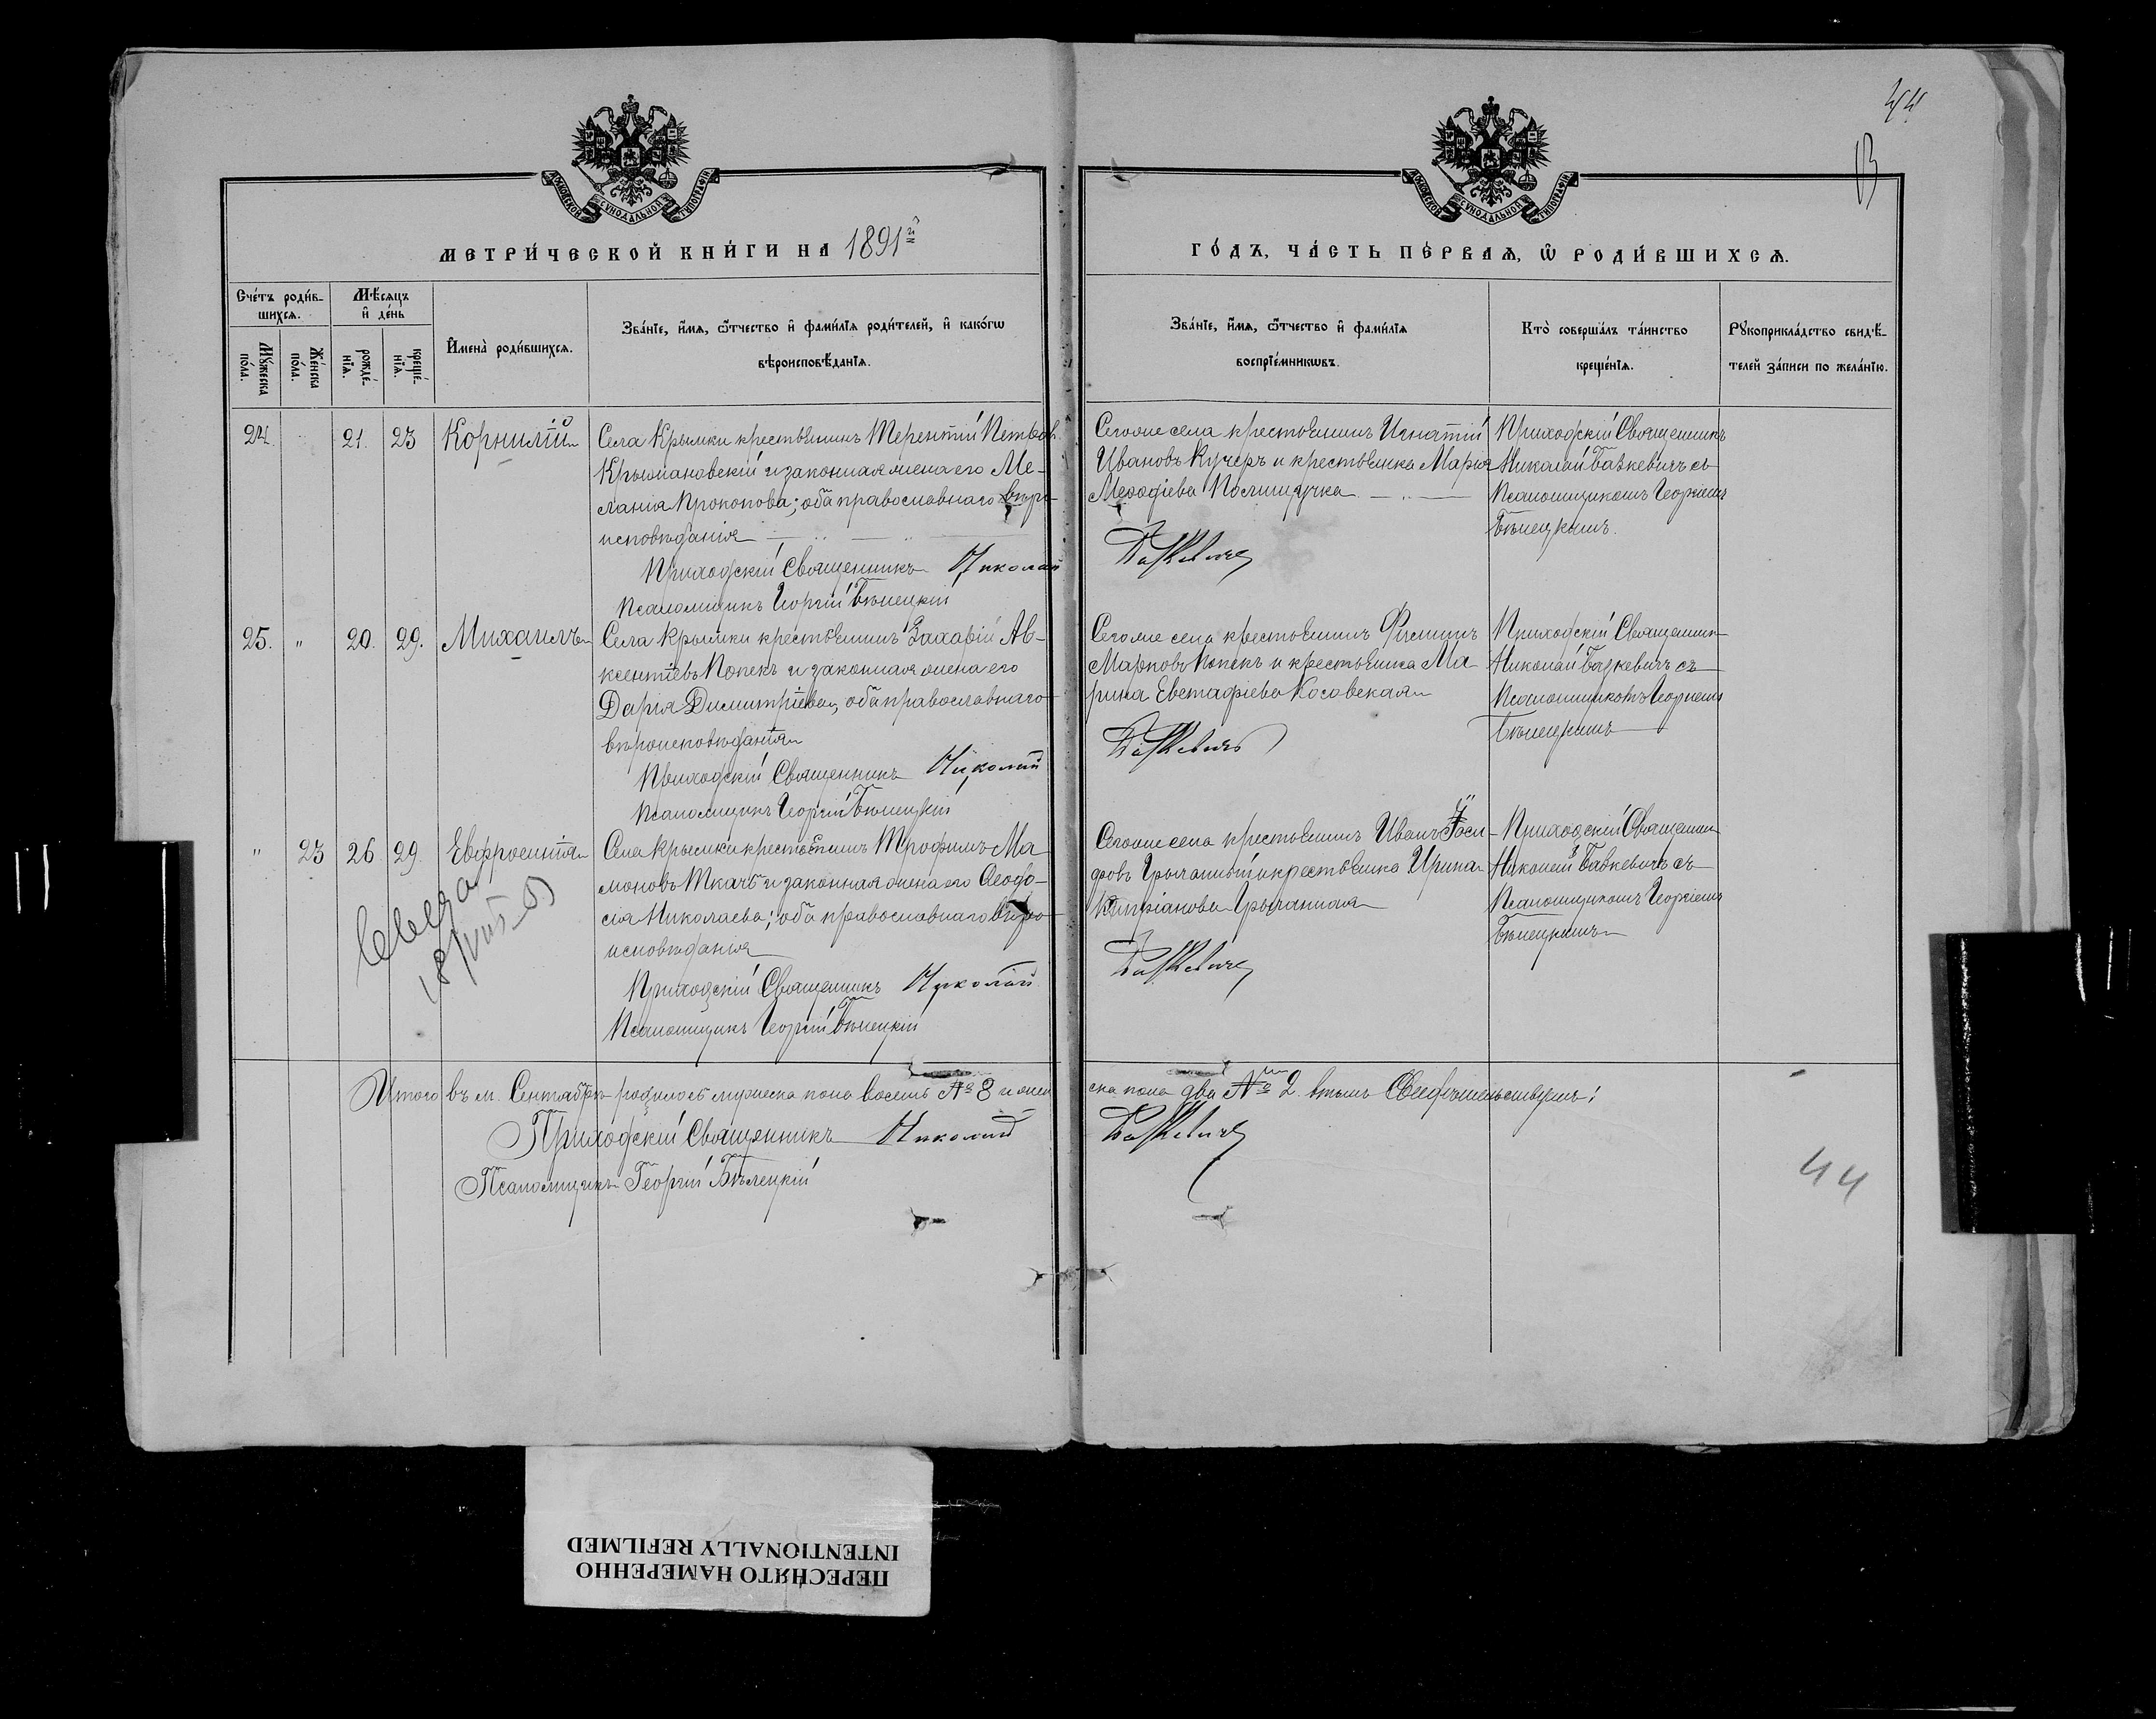 44
13
МОСКОВСКОЙ СѴНОДАЛЬНОЙ ТИПОГРАФІИ
МОСКОВСКОЙ СѴНОДАЛЬНОЙ ТИПОГРАФІИ
МЕТРИ́ЧЕСКОЙ КНИ́ГИ НА 1891й
ГО́ДЪ, ЧА́СТЬ ПЕ́РВАѦ, Ѡ҆ РОДИ́ВШИХСѦ.
Сче́тъ роди́в-
шихсѧ.
Мꙋ́жеска
по́ла.
Же́нска
по́ла.
Мѣ́сѧцъ
и҆ де́нь
рожде́-
нїѧ.
креще́-
нїѧ.
И҆мена̀ роди́вшихсѧ.
Зва́нїе, и҆́мѧ, ѻ҆́тчество и҆ фами́лїѧ роди́телей, и҆ како́гѡ
вѣроисповѣ́данїѧ.
Зва́нїе, и҆́мѧ, ѻ҆́тчество и҆ фами́лїѧ
воспрїе́мникѡвъ.
Кто̀ соверша́лъ та́инство
креще́нїѧ.
Рꙋкоприкла́дство свидѣ́-
телей за́писи по жела́нїю.
24. 21. 23 Корнилій
Села Крымки крестьянинъ Терентій Петровъ
Крымановскій и законная жена его Ме-
ланія Прокопова; оба православнаго вѣро-
исповѣданія
Приходскій Священникъ Николай
Псаломщикъ Георгій Бѣлецкій
Сегоже села крестьянинъ Игнатій
Ивановъ Кучеръ и крестьянка Марія
Меѳодіева
Приходскій Священникъ
Николай Башкевичъ съ
Псаломщикомъ Георгіемъ
Бѣлецкимъ.
25. " 20. 29. Михаилъ
Села Крымки крестьянинъ Захарій Ав-
ксентіевъ Попекъ и законная жена его
Дарія Димитріева, оба православнаго
вѣроисповѣданія
Приходскій Священникъ Николай
Псаломщикъ Георгій Бѣлецкій
Сегоже села крестьянинъ Филиппъ
Марковъ Попекъ и крестьянка Ма-
рина Евстафіева Косовская
Приходскій Священникъ
Николай Башкевичъ съ
Псаломщикомъ Георгіемъ
Бѣлецкимъ
" 23 26 29. Евфросинія
Села Крымки крестьянинъ Трофимъ Ма-
моновъ Ткачъ и законная жена его Ѳеодо-
сія Николаева; оба православнаго вѣро-
исповѣданія
Приходскій Священникъ Николай
Псаломщикъ Георгій Бѣлецкій
Сегоже села крестьянинъ Иванъ
и крестьянка Ирина
Кипріанова
Приходскій Священникъ
Николай Башкевичъ съ
Псаломщикомъ Георгіемъ
Бѣлецкимъ
Итого въ м. Сентябрѣ родилось мужеска пола восемь № 8 и жен
ска пола два № 2. въ чемъ Свидѣтельствуемъ:
Приходскій Священникъ Николай
Псаломщикъ Георгій Бѣлецкій
44
ПЕРЕСНЯТО НАМЕРЕННО
INTENTIONALLY REFILMED